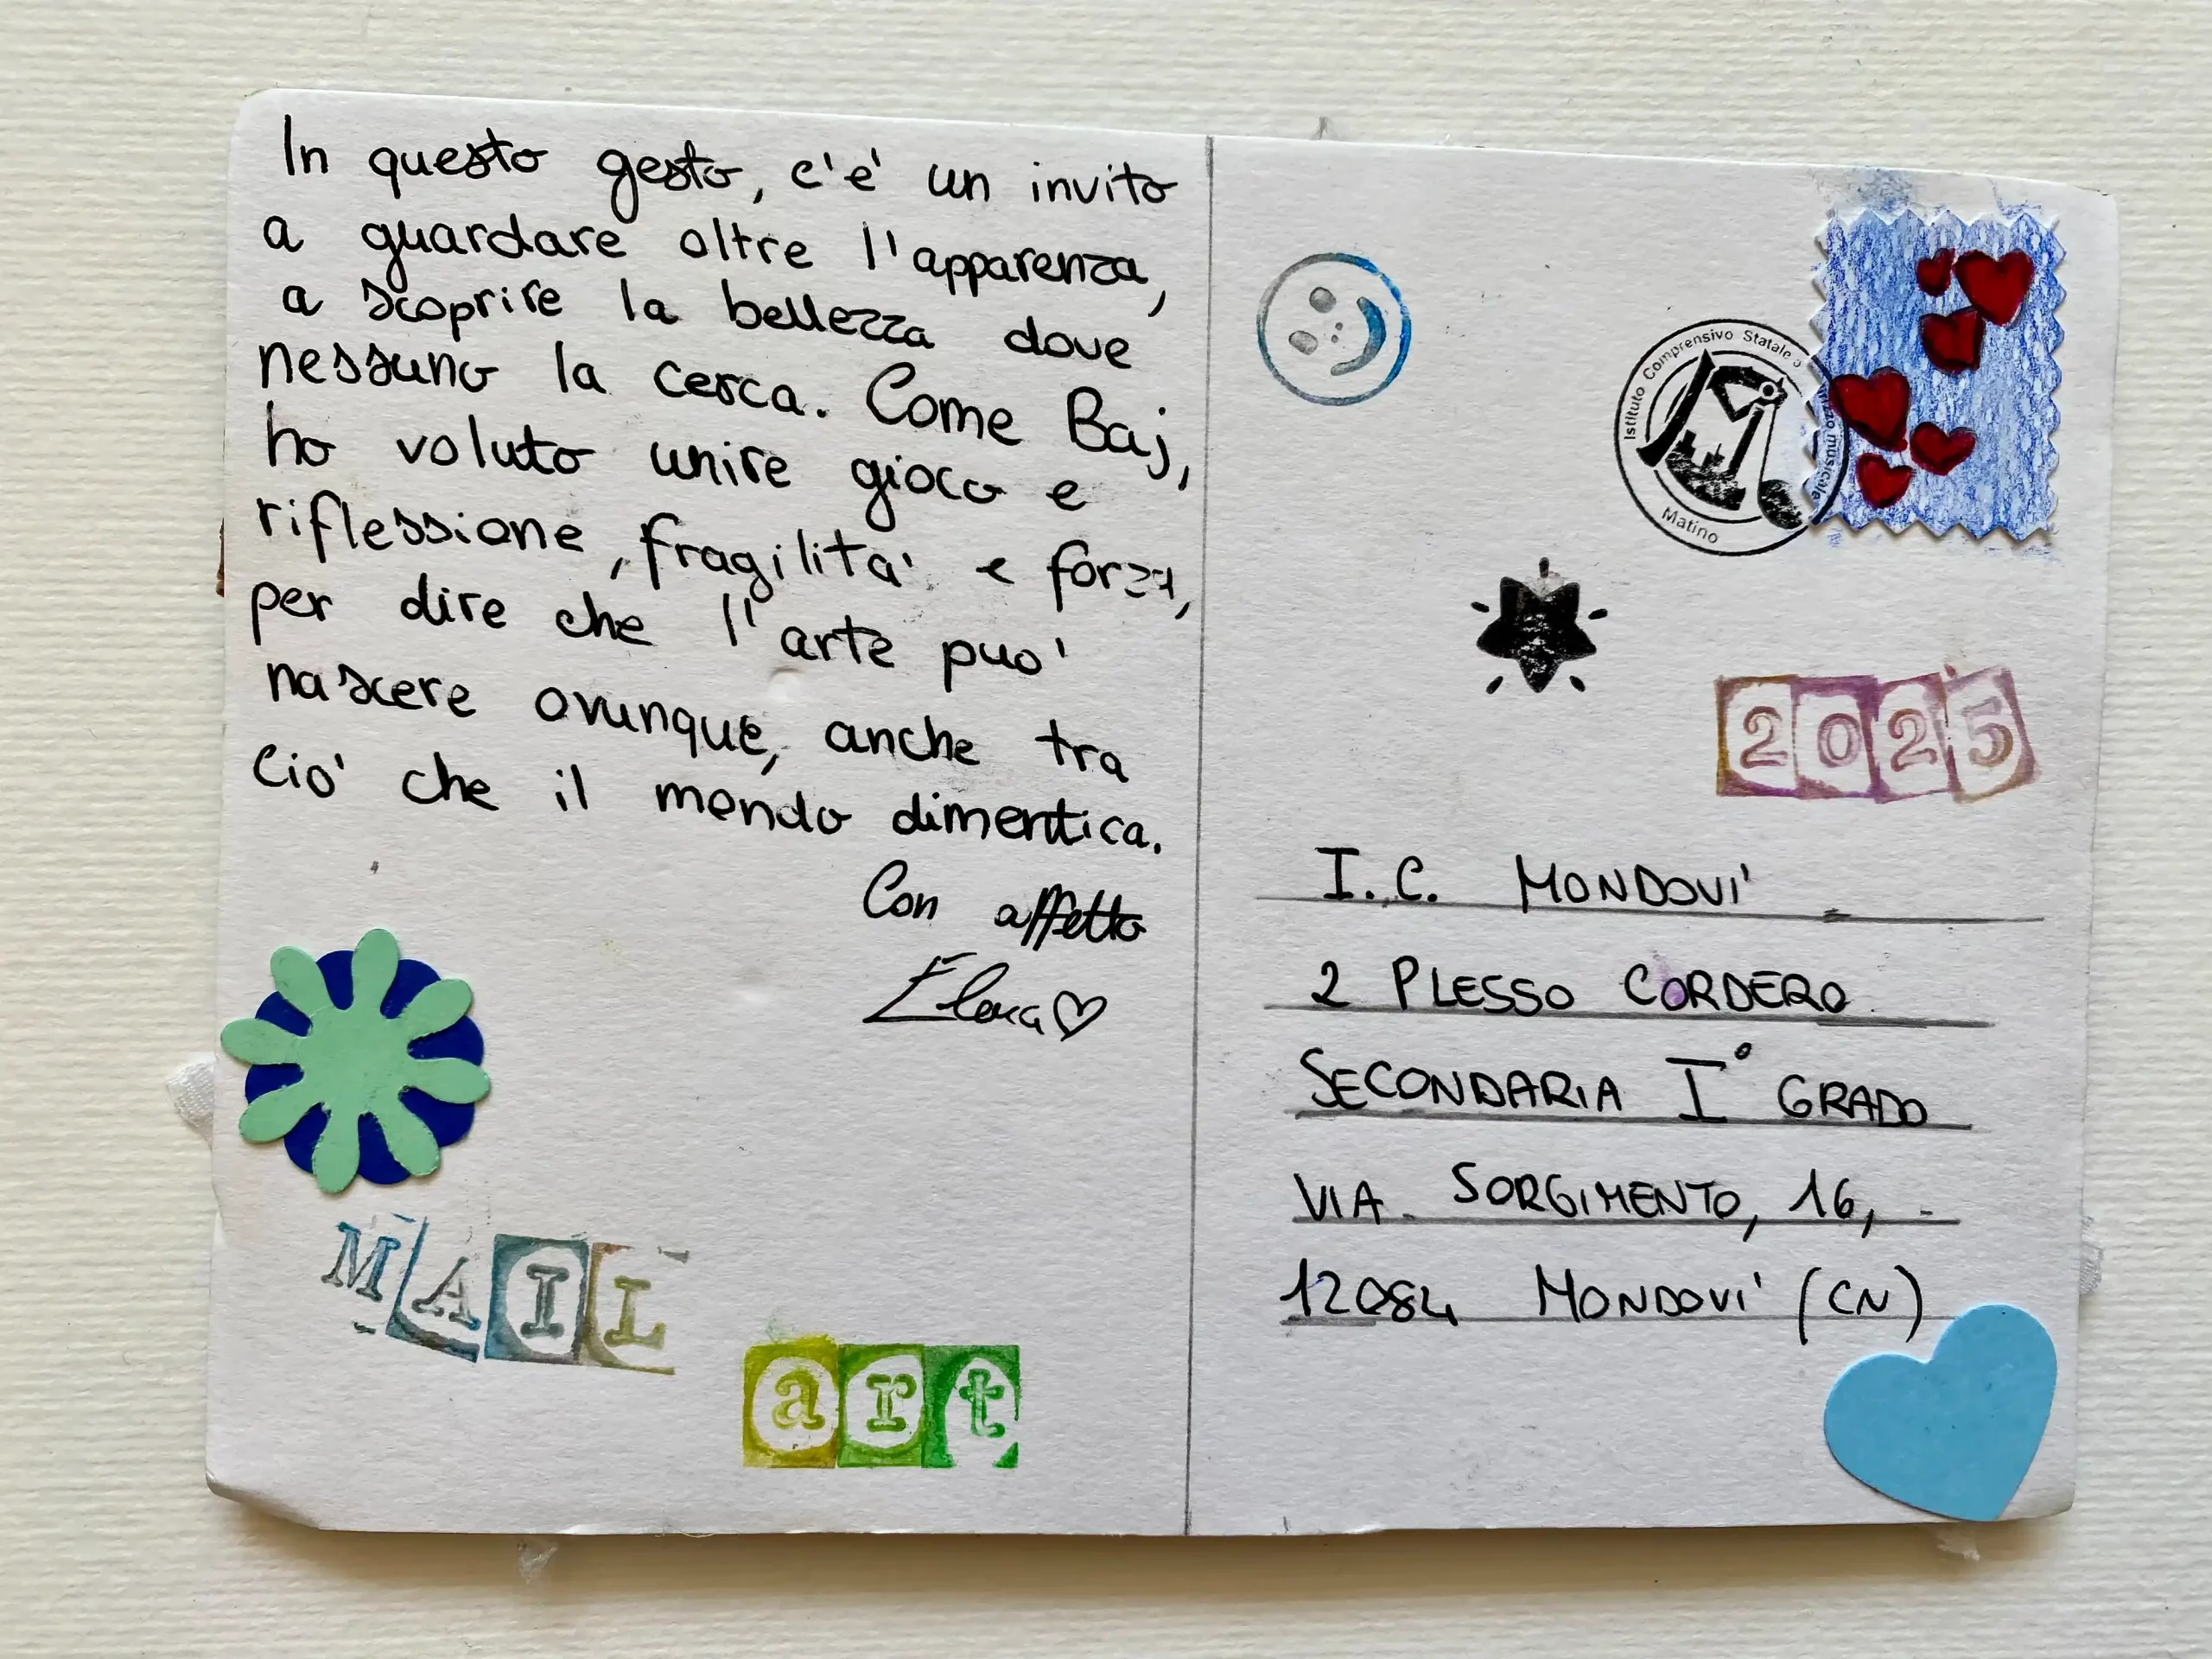 In questo gesto, c'e' un invito
a guardare oltre l'apparenza,
a scoprire la bellezza dove
nessuno la cerca. Come Baj,
ho voluto unire gioco e
riflessione, fragilita' e forza,
per dire che l'arte puo'
nascere ovunque, anche tra
cio' che il mondo dimentica.
Con affetto
Elena
MAIL
art
Istituto Comprensivo Statale
musicale
Matino
2025
I.C. MONDOVI'
2 PLESSO CORDERO
SECONDARIA I° GRADO
VIA SORGIMENTO, 16,
12084 MONDOVI' (CN)